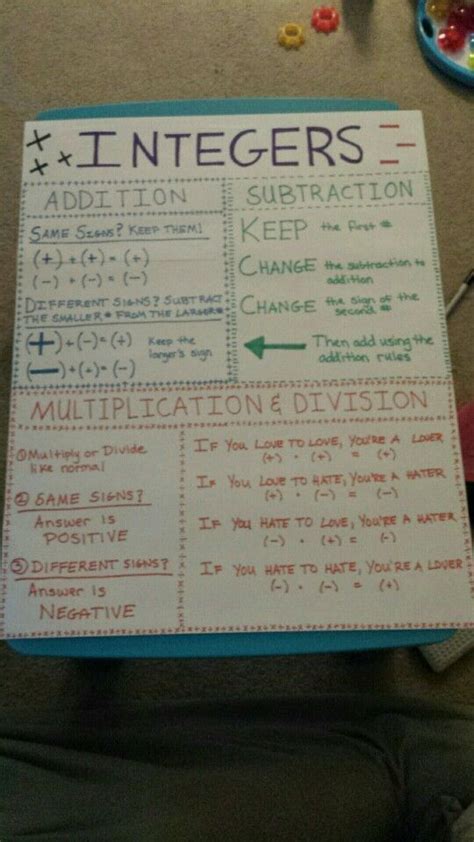 INTEGERS
ADDITION
SAME SIGNS? KEEP THEM!
(+) + (+) = (+)
(-) + (-) = (-)
DIFFERENT SIGNS? SUBTRACT
THE SMALLER # FROM THE LARGER #
(+) + (-) = (+)
(-) + (+) = (-)
Keep the
larger's sign
SUBTRACTION
KEEP the first #
CHANGE the subtraction to
addition
CHANGE the sign of the
second #
Then add using the
addition rules
MULTIPLICATION & DIVISION
① Multiply or Divide
like normal
② SAME SIGNS?
Answer is
POSITIVE
③ DIFFERENT SIGNS?
Answer is
NEGATIVE
IF YOU LOVE TO LOVE, YOU'RE A LOVER
(+) · (+) = (+)
IF YOU LOVE TO HATE, YOU'RE A HATER
(+) · (-) = (-)
IF YOU HATE TO LOVE, YOU'RE A HATER
(-) · (+) = (-)
IF YOU HATE TO HATE, YOU'RE A LOVER
(-) · (-) = (+)